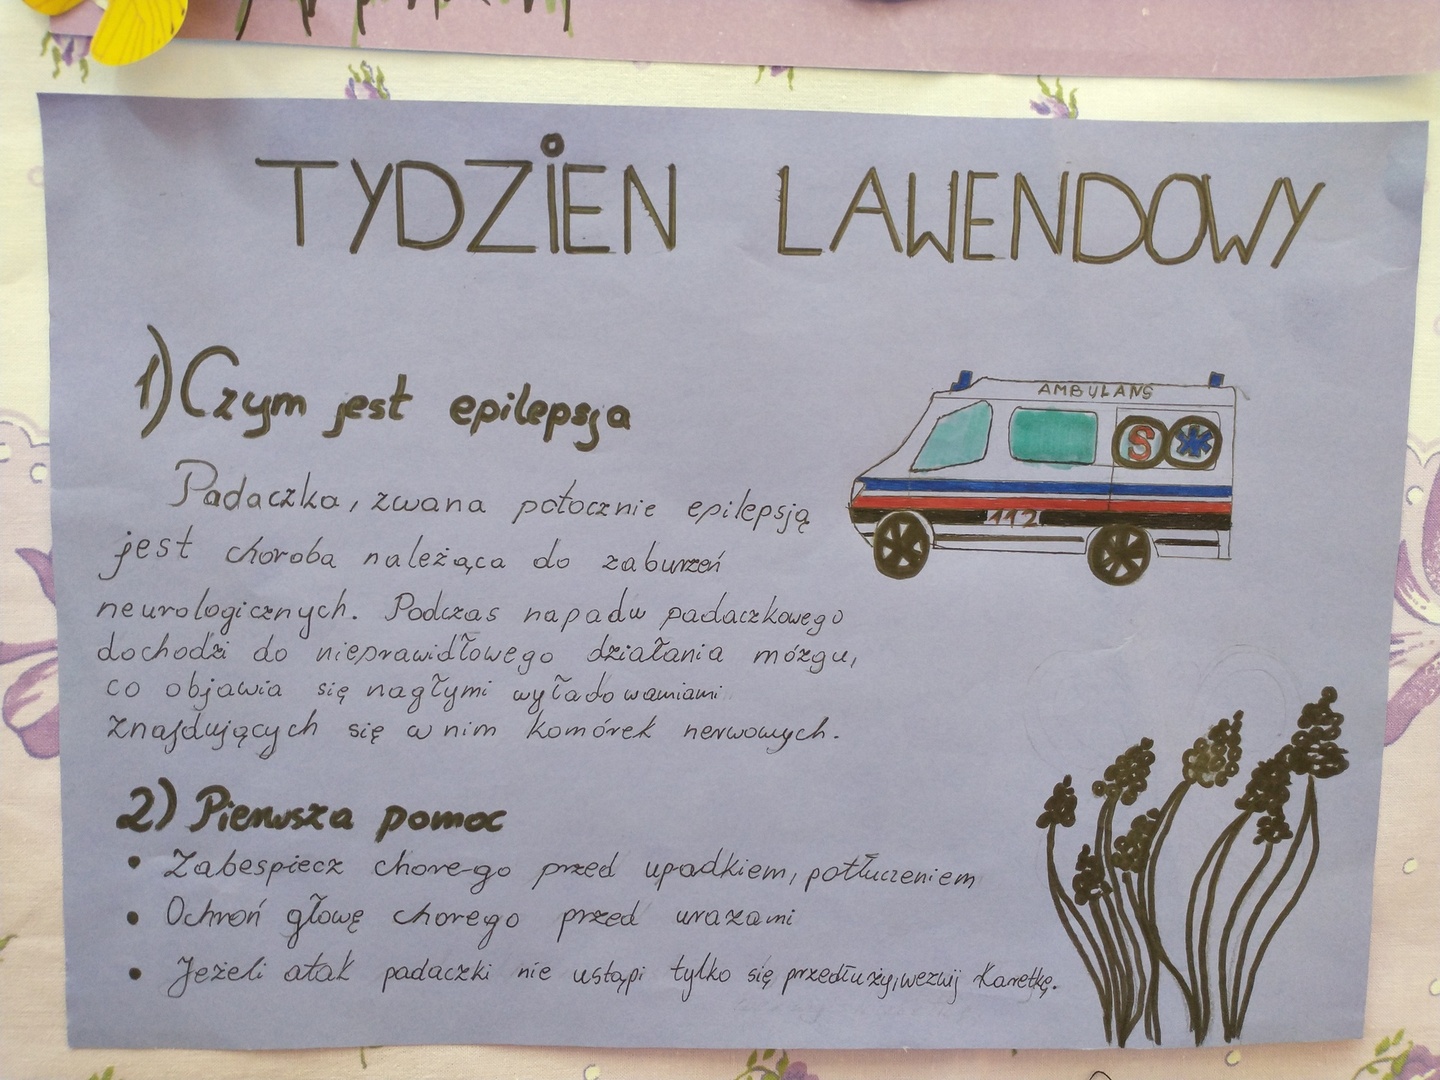 TYDZİEN LAWENDOWY
1) Czym jest epilepsja
AMBULANS
S
112
Padaczka, zwana potocznie epilepsją
jest choroba należąca do zaburzeń
neurologicznych. Podczas napadu padaczkowego
dochodzi do nieprawidłowego działania mózgu,
co objawia się nagłymi wyładowaniami
znajdujących się w nim komórek nerwowych.
2) Pierwsza pomoc
• Zabespiecz chorego przed upadkiem, potłuczeniem
• Ochroń głowę chorego przed urazami
• Jeżeli atak padaczki nie ustąpi tylko się przedłuży, wezwij Karetkę.